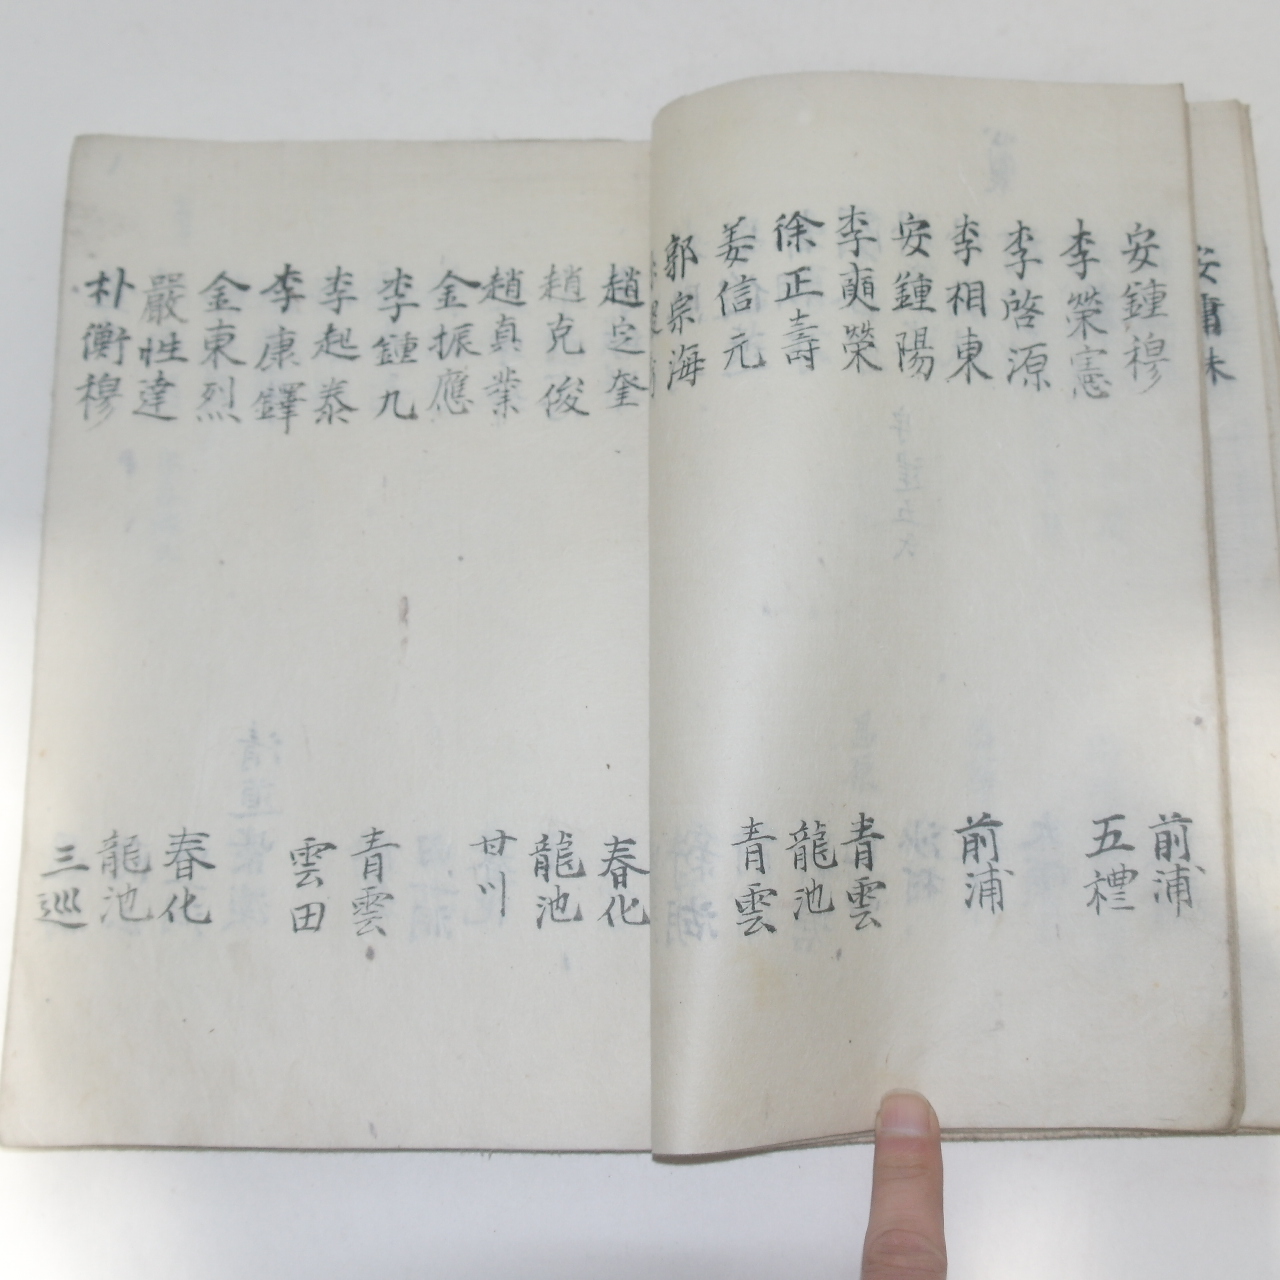 安鍾穆
李榮憲
李啓源
李相東
安鍾陽
李奭榮
徐正壽
姜信元
郭宗海
前浦
五禮
前浦
青雲
龍池
青雲
趙定奎
趙克俊
趙真業
金振應
李鍾九
李起泰
李康鐸
金東烈
嚴性達
朴衡穆
春化
龍池
廿川
青雲
雲田
春化
龍池
三巡